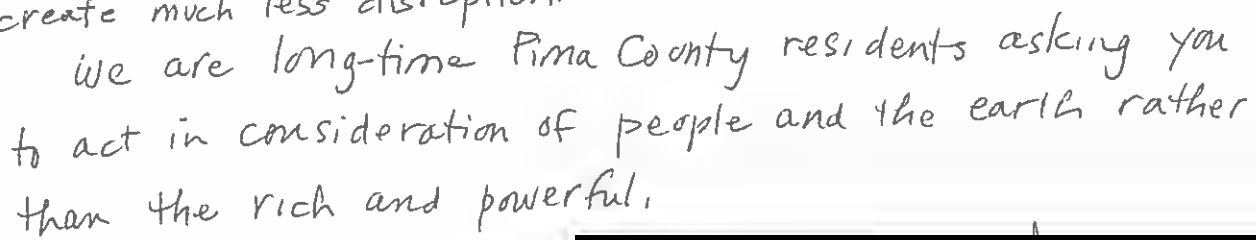 create much less disruption.
We are long-time Pima County residents asking you
to act in consideration of people and the earth rather
than the rich and powerful.